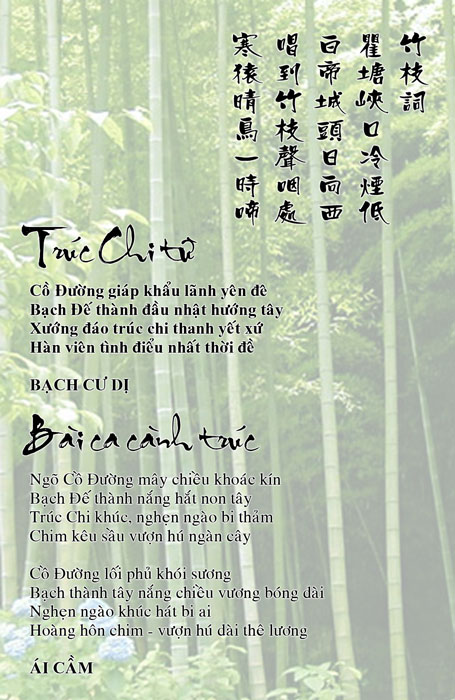 竹枝詞
瞿塘峽口冷煙低
白帝城頭日向西
唱到竹枝聲咽處
寒猿晴鳥一時啼
Trúc Chi từ
Cồ Đường giáp khẩu lãnh yên đê
Bạch Đế thành đầu nhật hướng tây
Xướng đáo trúc chi thanh yết xứ
Hàn viên tình điểu nhất thời đề
BẠCH CƯ DỊ
Bài ca cành trúc
Ngõ Cồ Đường mây chiều khoác kín
Bạch Đế thành nắng hắt non tây
Trúc Chi khúc, nghẹn ngào bi thảm
Chim kêu sầu vượn hú ngàn cây
Cồ Đường lối phủ khói sương
Bạch thành tây nắng chiều vương bóng dài
Nghẹn ngào khúc hát bi ai
Hoàng hôn chim - vượn hú dài thê lương
ÁI CẦM